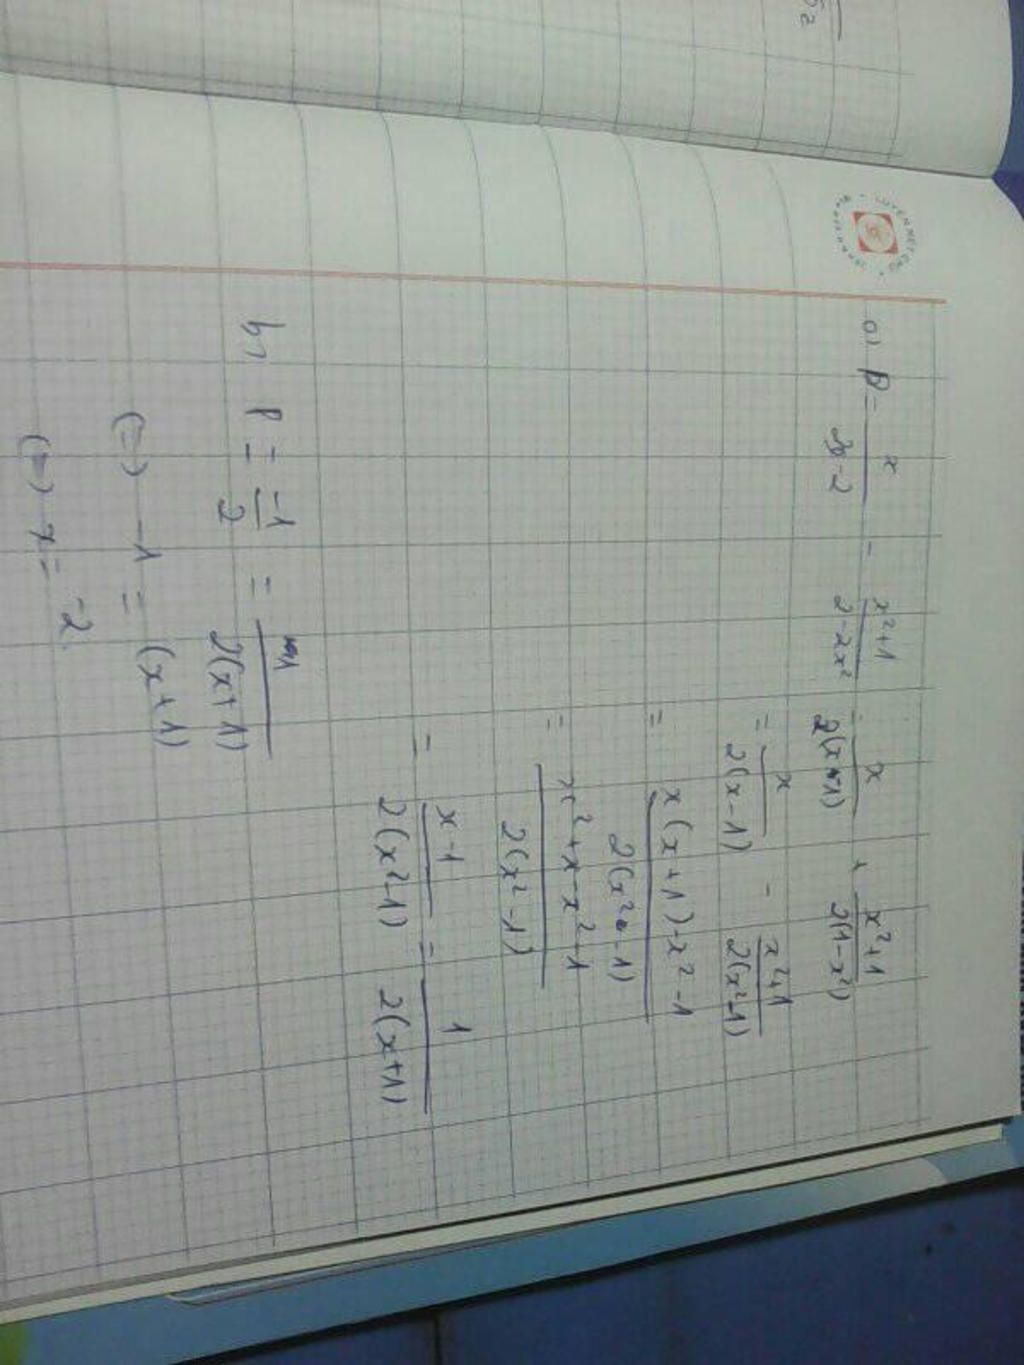 a) P = x/2x-2 - x²+1/2-2x² = x/2(x-1) + x²+1/2(1-x²)
= x/2(x-1) - x²+1/2(x²-1)
= x(x+1)-x²-1/2(x²-1)
= x²+x-x²-1/2(x²-1)
= x-1/2(x²-1) = 1/2(x+1)
b) P = -1/2 = 1/2(x+1)
(=) -1 = (x+1)
(=) x = -2